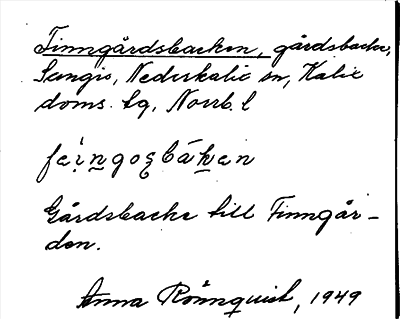 Finngårdsbacken, gårdsbacke,
Sangis, Nederkalix sn, Kalix
doms. tg, Norrb. l
Gårdsbacke till Finngår-
den.
Anna Rönnquist, 1949